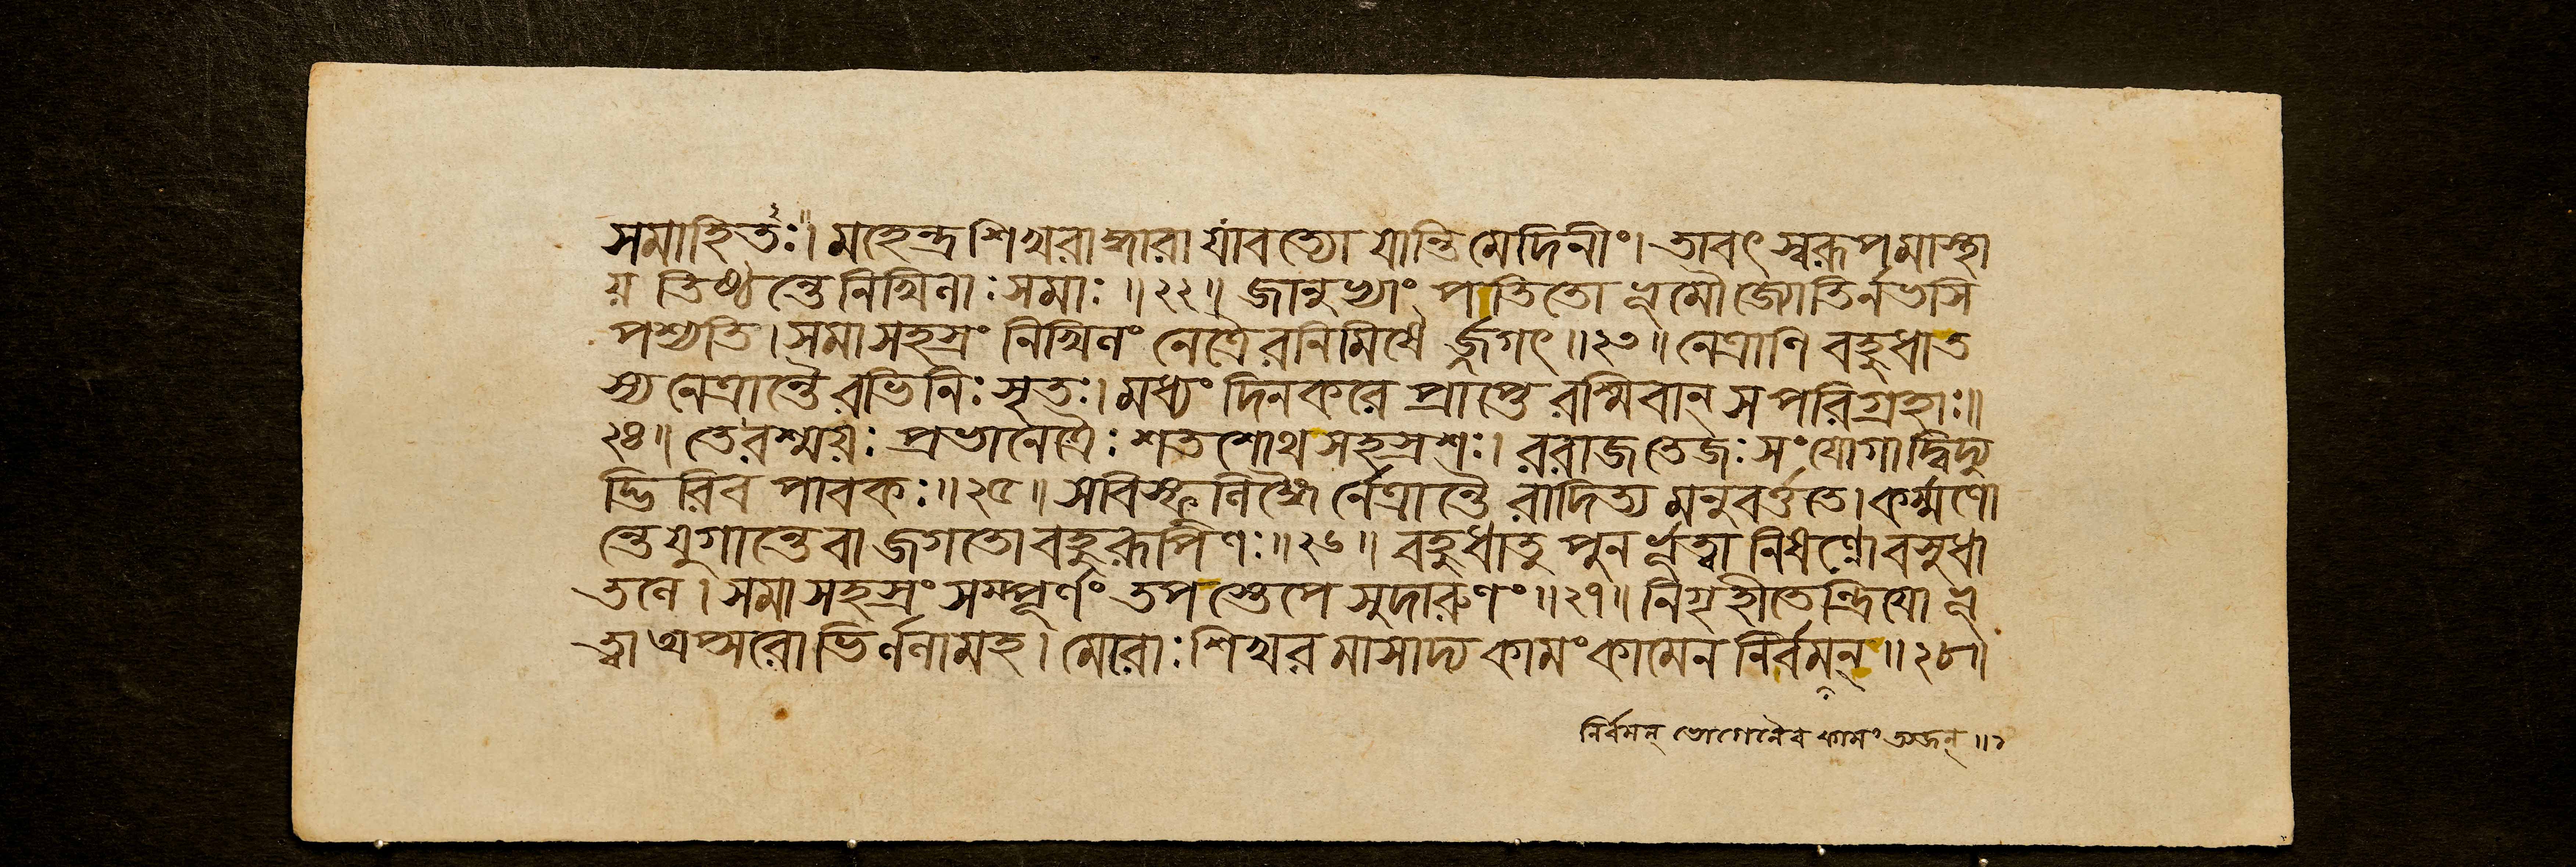 সমাহিতঃ।। মহেন্দ্রশিখরাদ্ধারা যাবত্যো যান্তি মেদিনীং। তাবৎ স্বরূপমাস্থা
য় তিষ্ঠন্তে নিখিলাঃ সমাঃ ॥২২॥ জানুভ্যাং পতিতো ভূমৌ জ্যোতির্নভসি
পশ্যতি। সমাসহস্রং নিখিলং নেত্রৈরনিমিষৈ র্জগৎ॥২৩॥ নেত্রাণি বহুধা ত
স্য নেত্রান্তৈরভিনিঃসৃতঃ। মধ্যং দিনকরে প্রাপ্তে রশ্মিবান্ স পরিগ্রহাঃ॥
২৪॥ তে রশ্ময়ঃ প্রভানেত্রৈঃ শতশোথ সহস্রশঃ। ররাজ তেজঃ সংযোগাদ্বিদ্যু
দ্ভিরিব পাবকঃ॥২৫॥ স বিস্ফুলিঙ্গৈ র্নেত্রান্তৈ রাদিত্য মনুবর্ত্ততে। কর্ম্মণো
ন্তে যুগান্তে বা জগতো বহুরূপিণঃ॥২৬॥ বহুধাতু পুনর্ভূত্বা নিষণ্ণো বসুধা
তলে। সমাসহস্রং সম্পূর্ণং তপস্তেপে সুদারুণং॥২৭॥ নিগৃহীতেন্দ্রিয়ো ভূ
ত্বা অপ্সরোভির্ললামহ। মেরোঃ শিখর মাসাদ্য কামং কামেন নির্বমন্॥২৮॥
নির্বমন্ ভোগেনৈব কামং ত্যজন্॥২